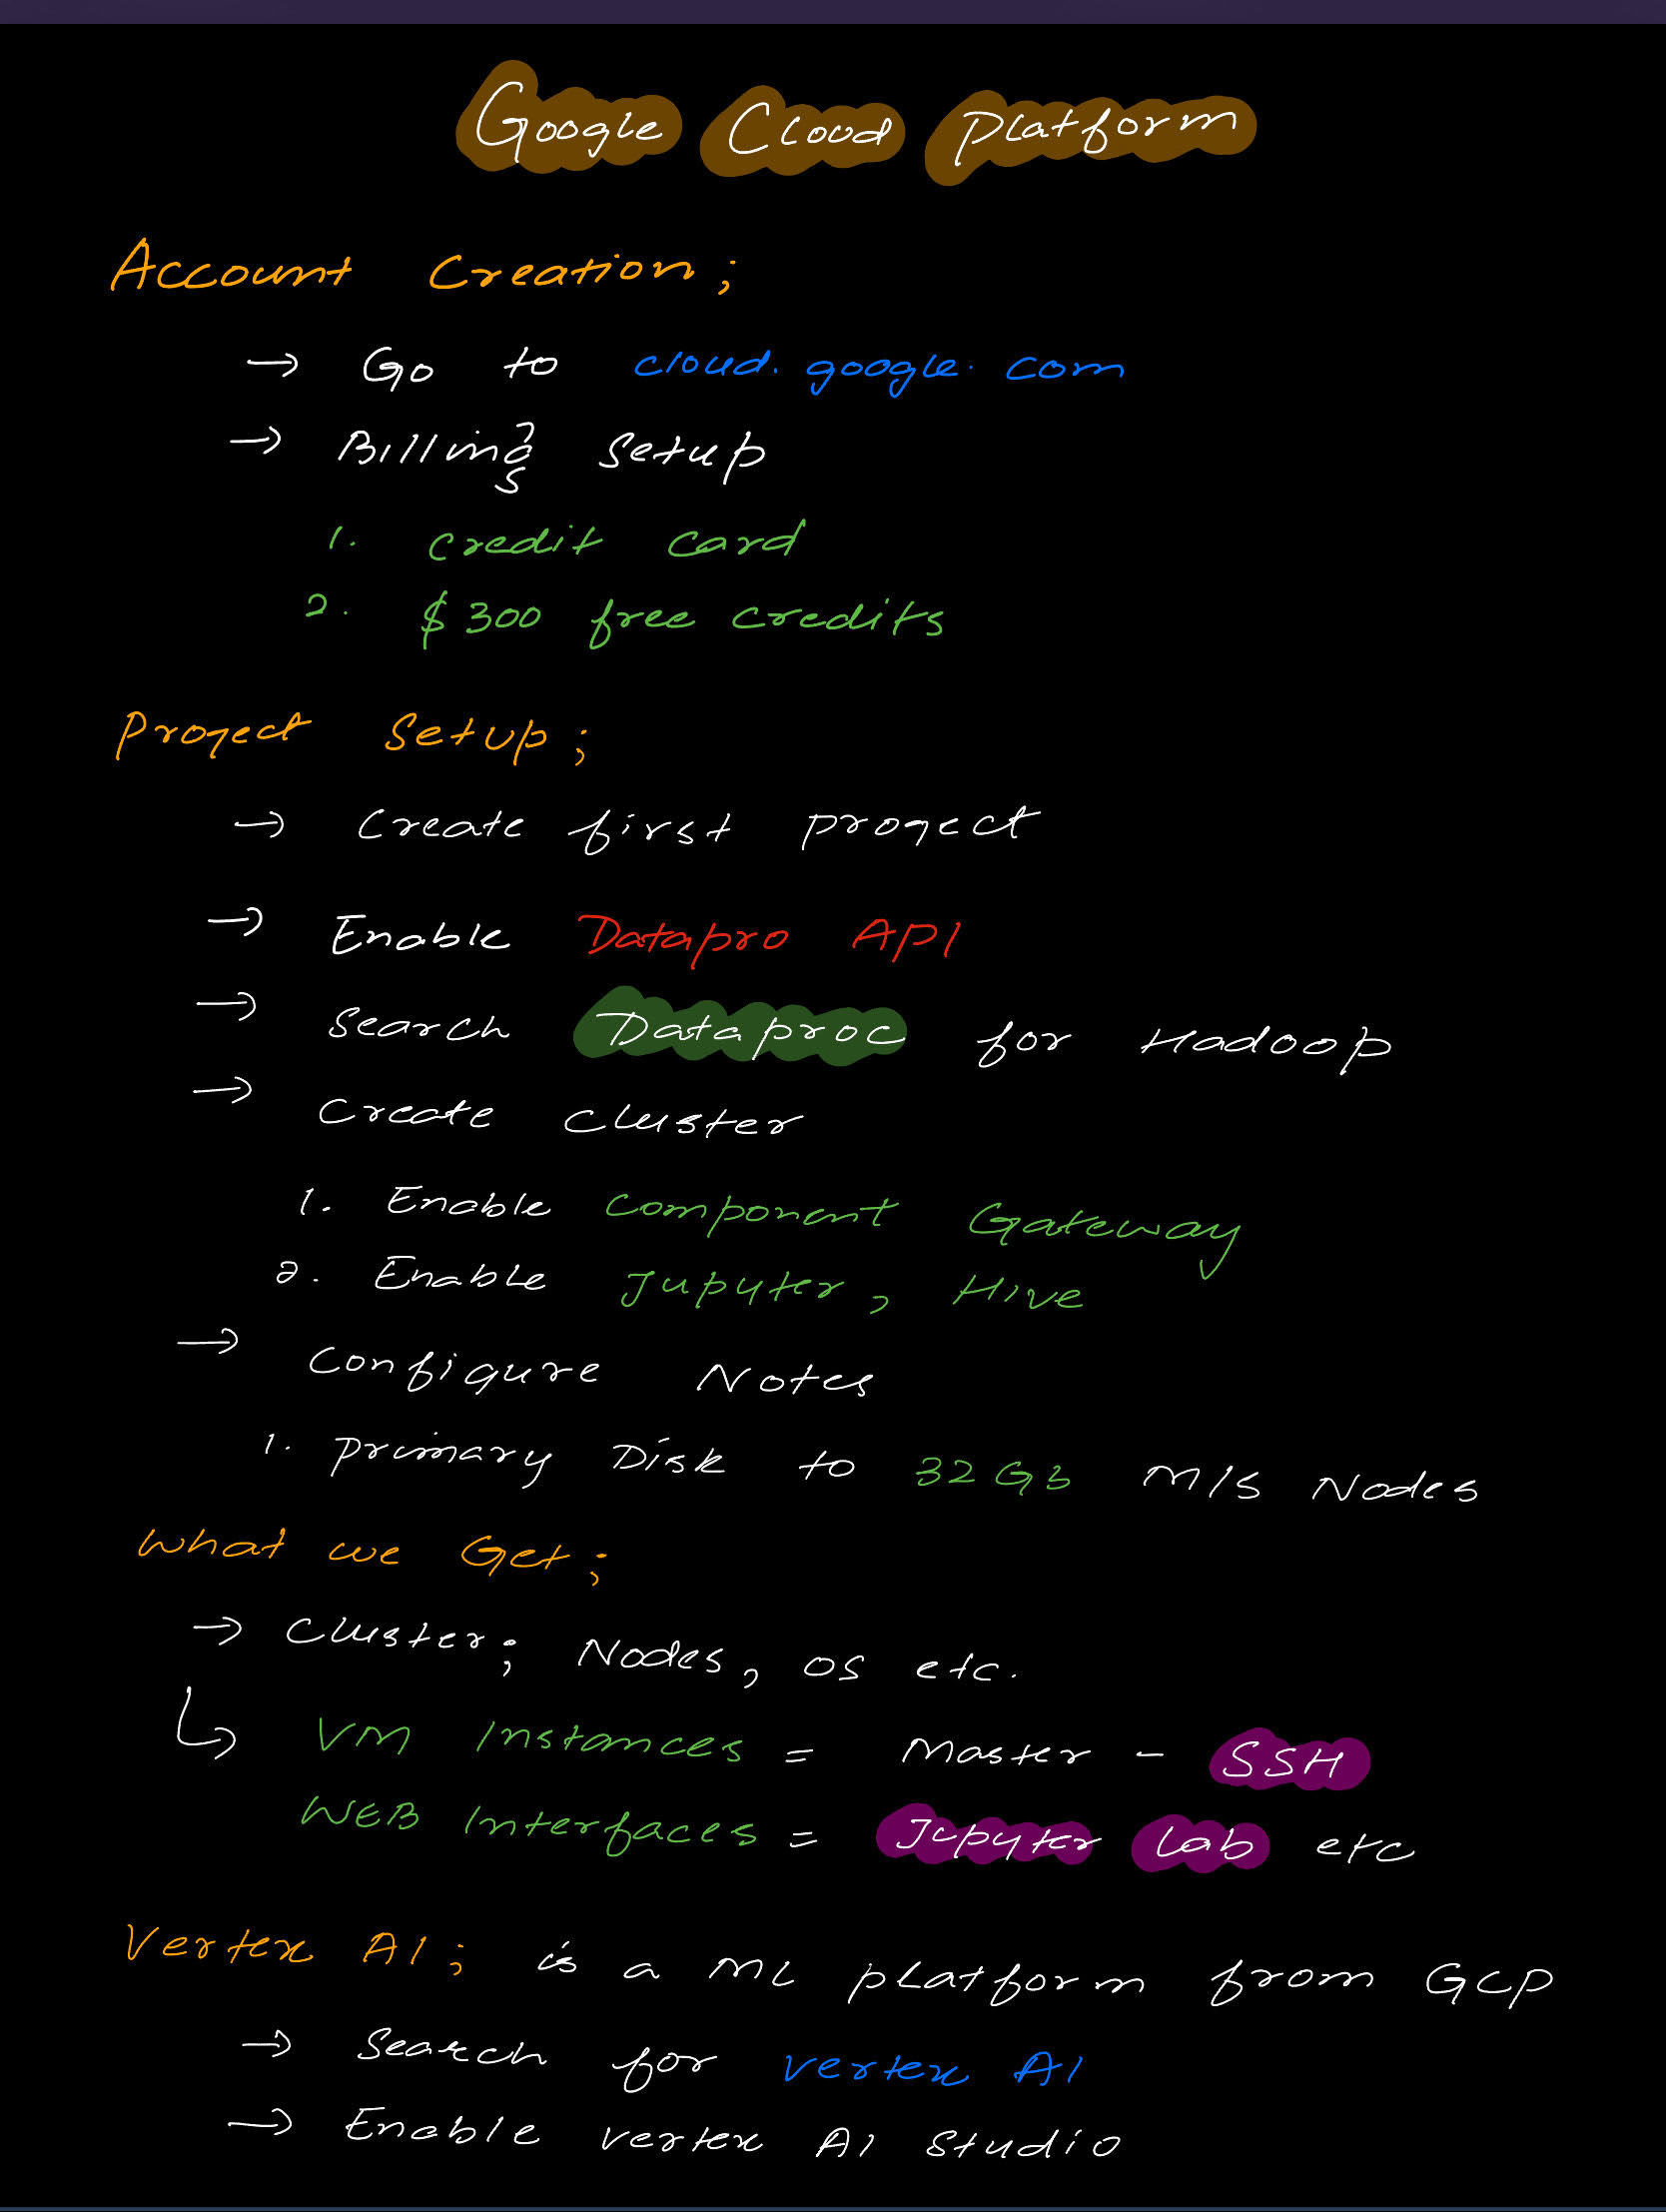 Google Cloud Platform
Account Creation;
→ Go to cloud.google.com
→ Billing Setup
1. Credit Card
2. $300 free credits
Project Setup;
→ Create first project
→ Enable Datapro API
→ Search Dataproc for Hadoop
→ Create Cluster
1. Enable Component Gateway
2. Enable Jupyter, Hive
→ Configure Notes
1. Primary Disk to 32 GB M/S Nodes
What we Get;
→ Cluster; Nodes, OS etc.
↳ VM Instances = Master - SSH
WEB Interfaces = Jupyter Lab etc
Vertex AI; is a ML platform from GCP
→ Search for Vertex AI
→ Enable Vertex AI Studio